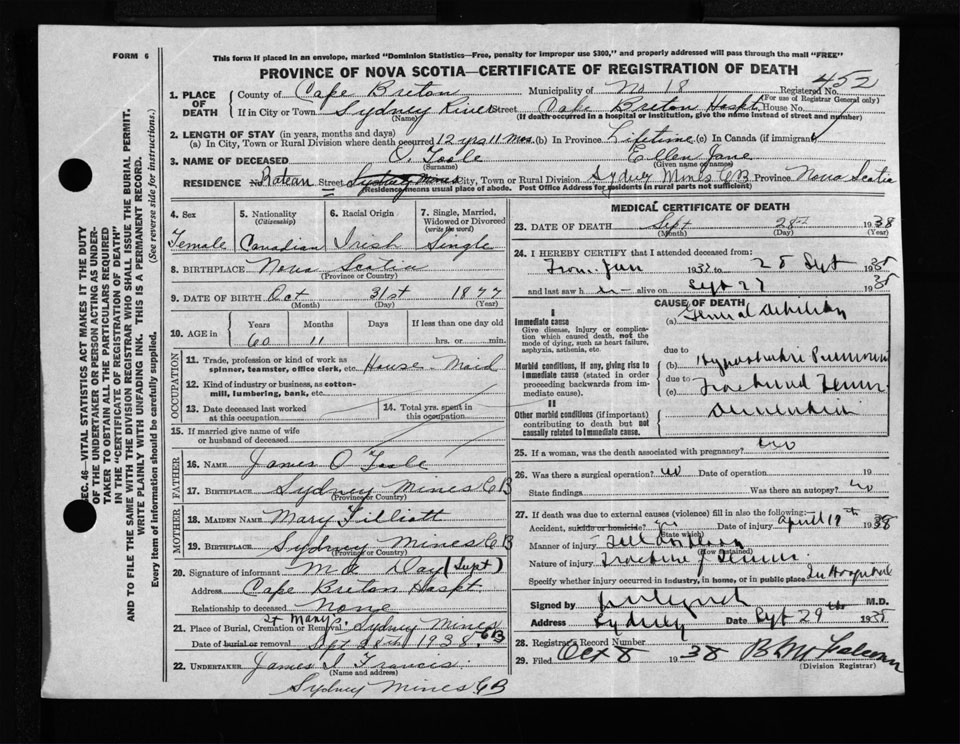 FORM 6
This form if placed in an envelope, marked "Dominion Statistics—Free, penalty for improper use $300," and properly addressed will pass through the mail "FREE"
PROVINCE OF NOVA SCOTIA—CERTIFICATE OF REGISTRATION OF DEATH
Registered No. 452
(For use of Registrar General only)
1. PLACE OF DEATH
County of Cape Breton Municipality of No 18
If in City or Town Sydney River Street Cape Breton Hospt. House No.
(Name) (If death occurred in a hospital or institution, give the name instead of street and number)
2. LENGTH OF STAY (in years, months and days)
(a) In City, Town or Rural Division where death occurred 12 yrs 11 mos. (b) In Province Lifetime (c) In Canada (if immigrant)
3. NAME OF DECEASED O'Toole Ellen Jane
(Surname) (Given name or names)
RESIDENCE No. Street Sydney Mines City, Town or Rural Division Sydney Mines CB Province Nova Scotia
(Residence means usual place of abode. Post Office Address for residents in rural parts not sufficient)
4. Sex
Female
5. Nationality
(Citizenship)
Canadian
6. Racial Origin
Irish
7. Single, Married, Widowed or Divorced
(write the word)
Single
8. BIRTHPLACE Nova Scotia
(Province or Country)
9. DATE OF BIRTH Oct 31st 1877
(Month) (Day) (Year)
10. AGE in
Years Months Days If less than one day old
60 11 hrs. or min.
OCCUPATION
11. Trade, profession or kind of work as spinner, teamster, office clerk, etc. House-Maid
12. Kind of industry or business, as cotton-mill, lumbering, bank, etc.
13. Date deceased last worked at this occupation
14. Total yrs. spent in this occupation
15. If married give name of wife or husband of deceased
FATHER
16. NAME James O'Toole
17. BIRTHPLACE Sydney Mines CB
(Province or Country)
MOTHER
18. MAIDEN NAME Mary Filliott
19. BIRTHPLACE Sydney Mines CB
(Province or Country)
20. Signature of informant Day (Supt)
Address Cape Breton Hospt.
Relationship to deceased None
21. Place of Burial, Cremation or Removal St Mary's, Sydney Mines CB
Date of burial or removal Sept 1938.
22. UNDERTAKER James Francis
(Name and address)
Sydney Mines CB
MEDICAL CERTIFICATE OF DEATH
23. DATE OF DEATH Sept 28th 1938
(Month) (Day) (Year)
24. I HEREBY CERTIFY that I attended deceased from:
From Jan 1937 to 28 Sept 1938
and last saw h er alive on Sept 27 1938
CAUSE OF DEATH
I
Immediate cause
Give disease, injury or complication which caused death, not the mode of dying, such as heart failure, asphyxia, asthenia, etc.
(a) General debility
due to
Morbid conditions, if any, giving rise to immediate cause (stated in order proceeding backwards from immediate cause).
(b) Hypostatic Pneumonia
due to
(c) Fractured Femur
II
Other morbid conditions (if important) contributing to death but not causally related to immediate cause.
25. If a woman, was the death associated with pregnancy? no
26. Was there a surgical operation? no Date of operation 19
State findings Was there an autopsy? no
27. If death was due to external causes (violence) fill in also the following:
Accident, suicide or homicide? yes Date of injury April 19th 1938
(State which)
Manner of injury Fell on floor
(How sustained)
Nature of injury Fracture of Femur
Specify whether injury occurred in industry, in home, or in public place In Hospital
Signed by M.D.
Address Sydney Date Sept 29th 1938
28. Registrar's Record Number
29. Filed Oct 8 1938
(Division Registrar)
SEC. 46—VITAL STATISTICS ACT MAKES IT THE DUTY
OF THE UNDERTAKER OR PERSON ACTING AS UNDER-
TAKER TO OBTAIN ALL THE PARTICULARS REQUIRED
IN THE "CERTIFICATE OF REGISTRATION OF DEATH"
AND TO FILE THE SAME WITH THE DIVISION REGISTRAR WHO SHALL ISSUE THE BURIAL PERMIT.
WRITE PLAINLY WITH UNFADING INK. THIS IS A PERMANENT RECORD.
Every item of information should be carefully supplied. (See reverse side for instructions.)